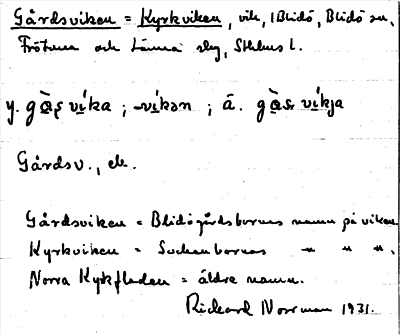 Gårdsviken = Kyrkviken, vik, i Blidö, Blidö sn,
Frötuna och Länna skg, Sthlms l.
y. gàṣ víka ; -víkən ; ä. gàṣ víkja
Gårdsv., ek.
Gårdsviken = Blidögårdsbornas namn på viken.
Kyrkviken = Sockenbornas " " ".
Norra Kyrkfladen = äldre namn.
Rickard Norrman 1931.